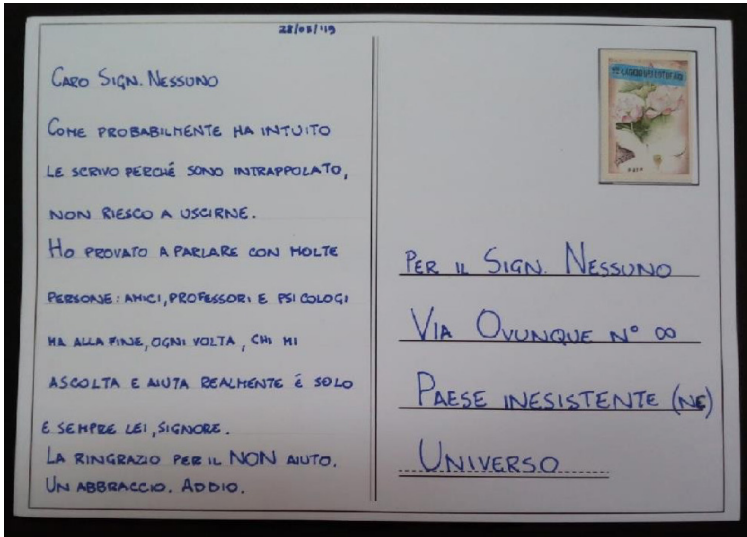 28/05/'19
CARO SIGN. NESSUNO
COME PROBABILMENTE HA INTUITO
LE SCRIVO PERCHÉ SONO INTRAPPOLATO,
NON RIESCO A USCIRNE.
HO PROVATO A PARLARE CON MOLTE
PERSONE: AMICI, PROFESSORI E PSICOLOGI
MA ALLA FINE, OGNI VOLTA, CHI MI
ASCOLTA E AIUTA REALMENTE É SOLO
E SEMPRE LEI, SIGNORE.
LA RINGRAZIO PER IL NON AIUTO.
UN ABBRACCIO. ADDIO.
PER IL SIGN. NESSUNO
VIA OVUNQUE N° ∞
PAESE INESISTENTE (NE)
UNIVERSO